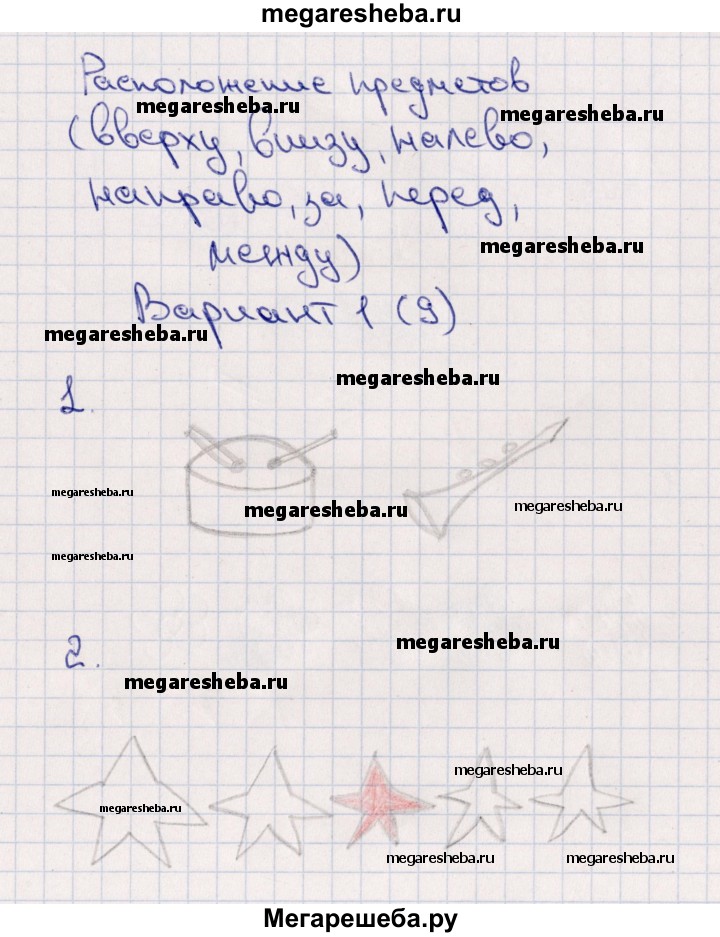 megaresheba.ru
Расположение предметов
megaresheba.ru
megaresheba.ru
(вверху, внизу, налево,
направо, за, перед,
megaresheba.ru
между)
Вариант 1 (9)
megaresheba.ru
megaresheba.ru
1.
megaresheba.ru
megaresheba.ru
megaresheba.ru
megaresheba.ru
2.
megaresheba.ru
megaresheba.ru
megaresheba.ru
megaresheba.ru
megaresheba.ru
megaresheba.ru
Мегарешеба.ру